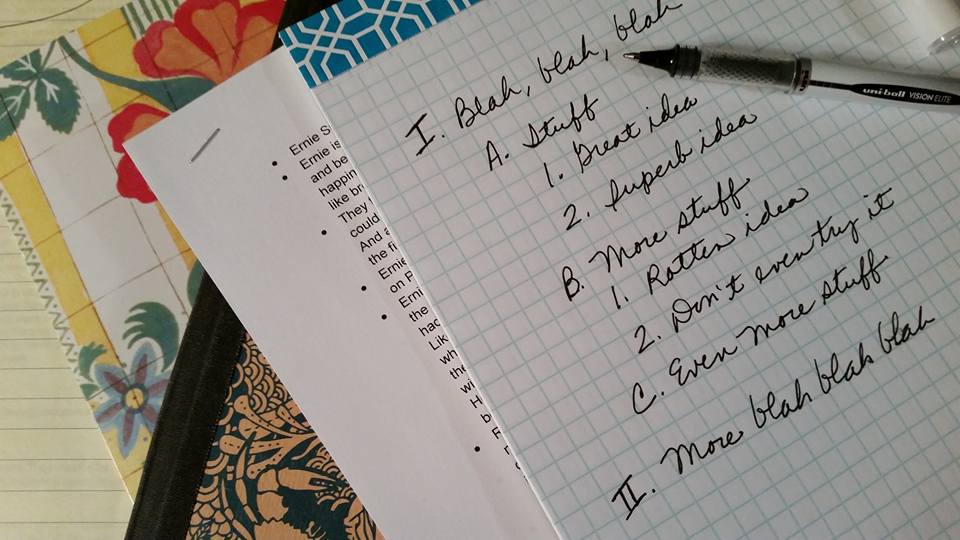 I. Blah, blah, blah
A. Stuff
1. Great idea
2. Superb idea
B. More stuff
1. Rotten idea
2. Don't even try it
C. Even more stuff
II. More blah blah blah
uni-ball VISION ELITE
• Ernie
• Ernie is
and be
happin
like br
They
could
• And
the fi
• Ernie
on
• Erni
the
had
Lik
wh
the
wi